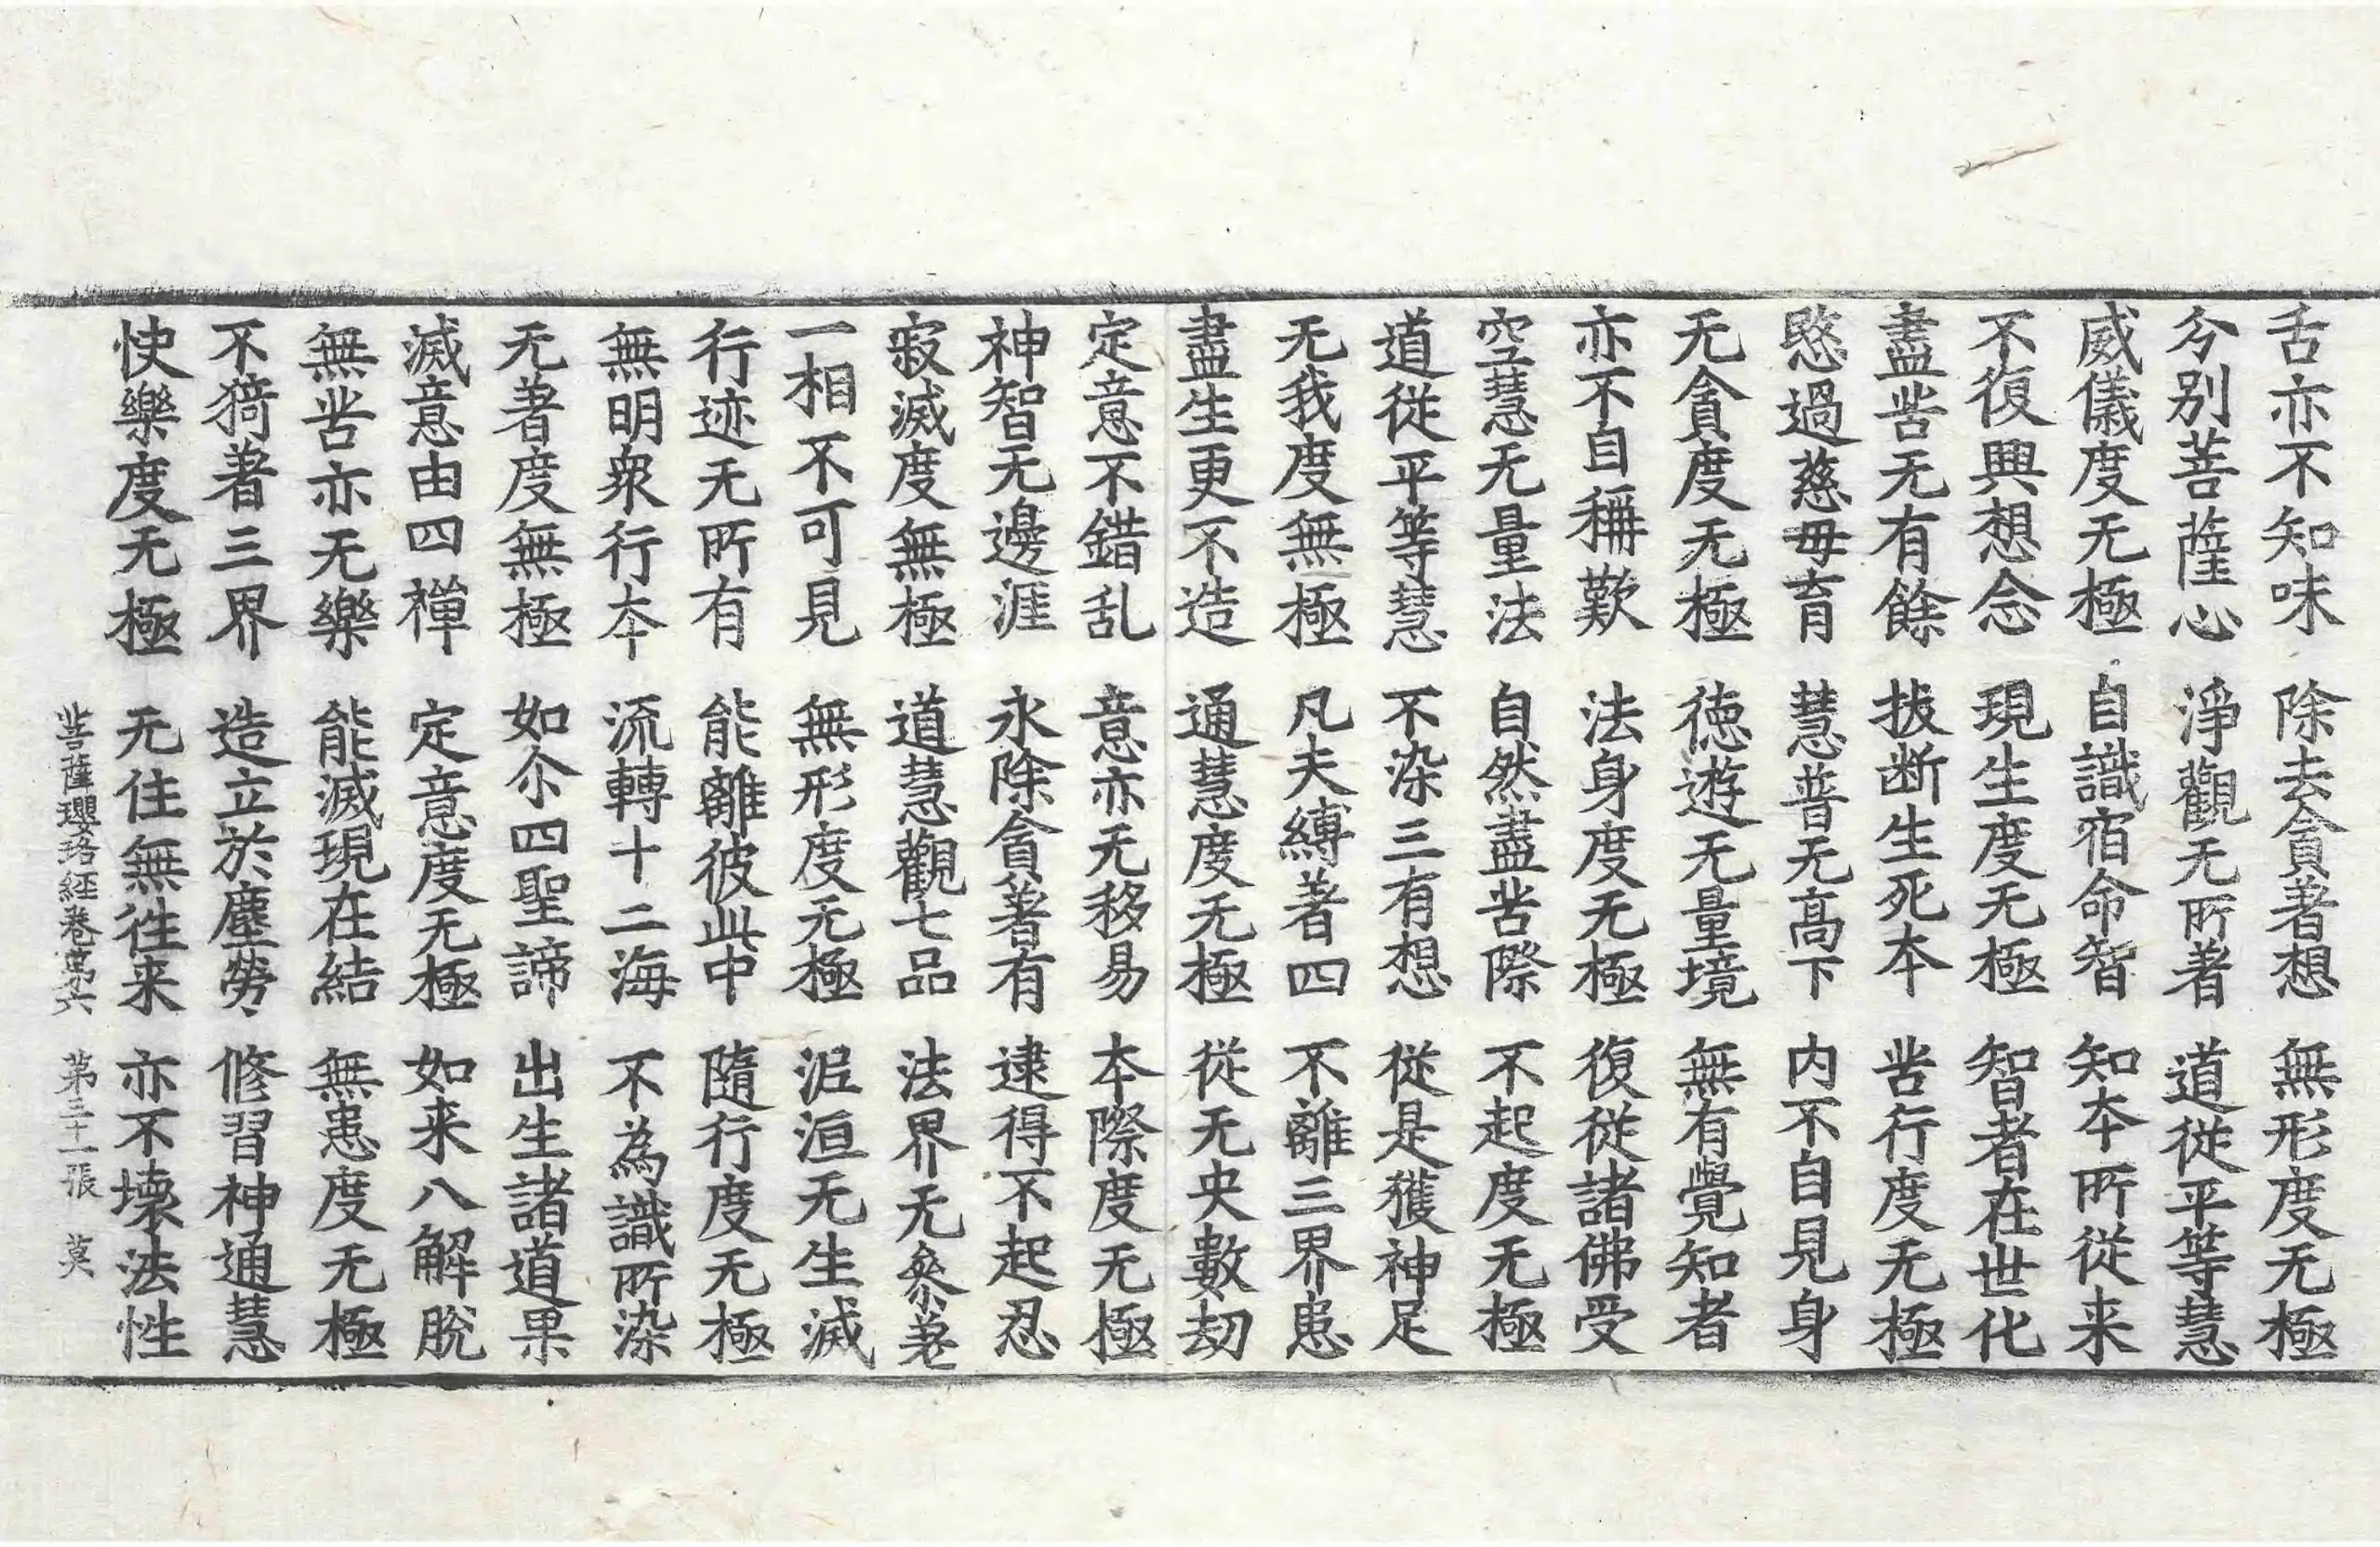 舌亦不知味　除去貪著想　無形度无極
分別菩薩心　淨觀无所著　道從平等慧
威儀度无極　自識宿命智　知本所從来
不復興想念　現生度无極　智者在世化
盡苦无有餘　拔断生死本　苦行度无極
愍過慈母育　慧普无高下　内不自見身
无貪度无極　德遊无量境　無有覺知者
亦不自稱歎　法身度无極　復從諸佛受
空慧无量法　自然盡苦際　不起度无極
道從平等慧　不染三有想　從是獲神足
无我度無極　凡夫縛著四　不離三界患
盡生更不造　通慧度无極　從无央數劫
定意不錯乱　意亦无移易　本際度无極
神智无邊涯　永除貪著有　逮得不起忍
寂滅度無極　道慧觀七品　法界无叅差
一相不可見　無形度无極　泥洹无生滅
行迹无所有　能離彼此中　隨行度无極
無明衆行本　流轉十二海　不為識所染
无著度無極　如尒四聖諦　出生諸道果
滅意由四禪　定意度无極　如来八解脫
無苦亦无樂　能滅現在結　無患度无極
不猗著三界　造立於塵勞　修習神通慧
快樂度无極　无住無徃来　亦不壊法性
菩薩瓔珞經卷第六　第三十一張　莫